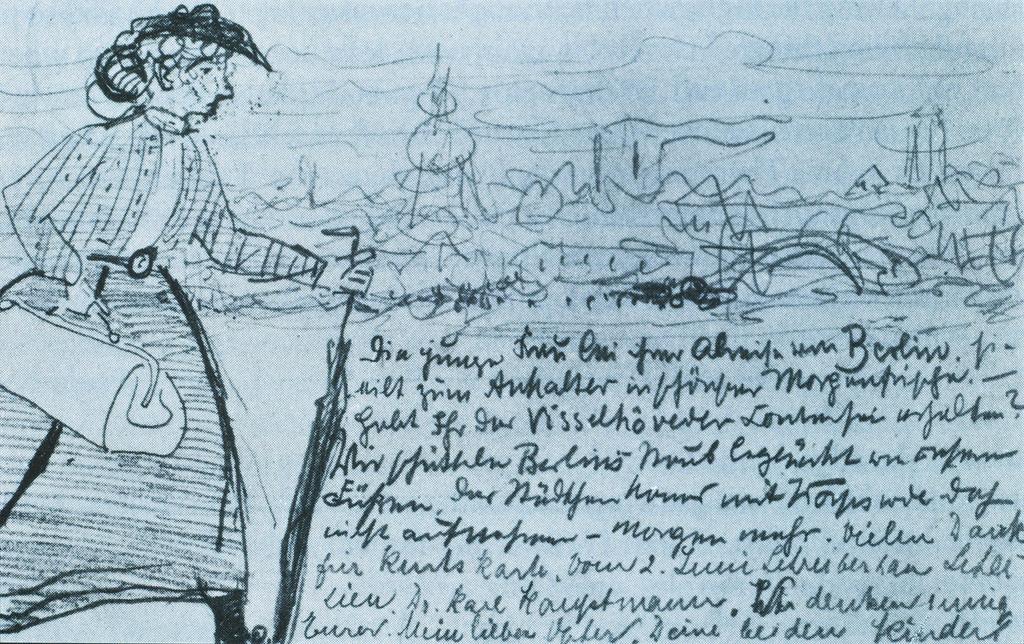 Die junge Frau bei ihrer Abreise von Berlin. Sie
eilt zum Anhalter in schönster Morgenfrische. —
Habt Ihr das Visselhöveder Conterfei erhalten?
Wir schütteln Berlins Staub beglückt von unsern
Füßen. Das Städtchen kann mit Worpswede doch
nicht aufnehmen – Morgen mehr. Vielen Dank
für Kurts Karte, vom 2. Juni Schreiberhau Schle
sien, Dr. Karl Hauptmann. Wir denken innig
Eurer. Mein lieber Vater, Deine beiden Kinder